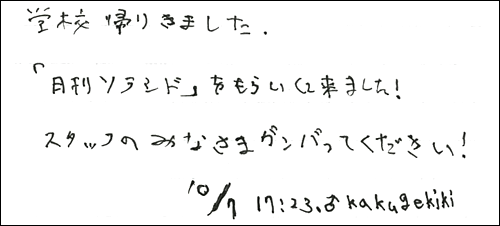 学校帰りきました.
「月刊ソラシド」をもらいに来ました!
スタッフのみなさまガンバってください!
10/7 17:23.♂kakugekiki